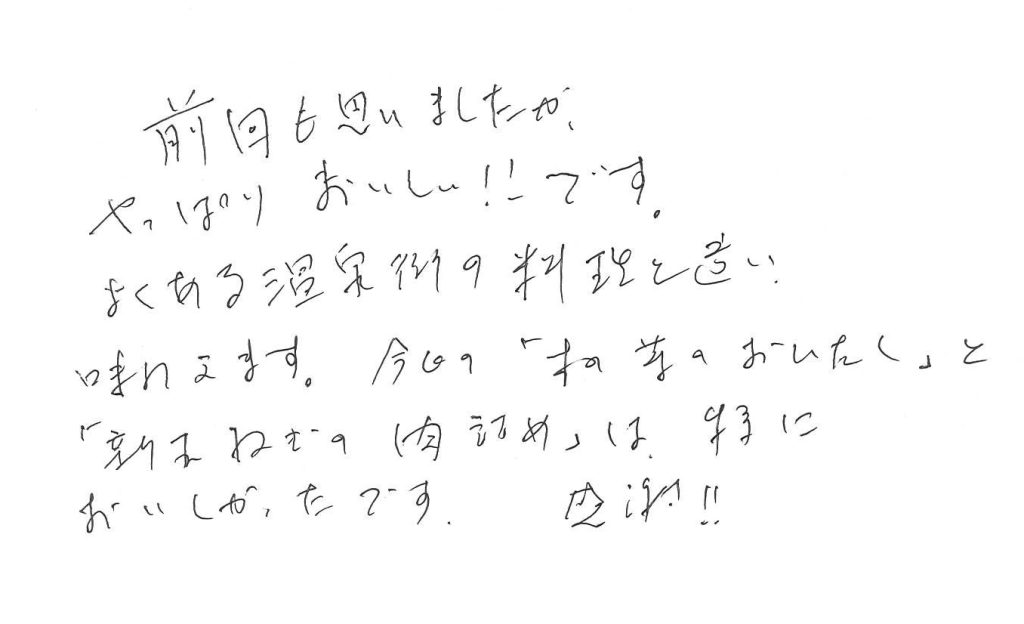 前回も思いましたが、
やっぱり おいしい!!です。
よくある温泉街の料理と違い
味わえます。今日の「木の芽のおひたし」と
「新玉ねぎの肉詰め」は、特に
おいしかったです。 感謝!!